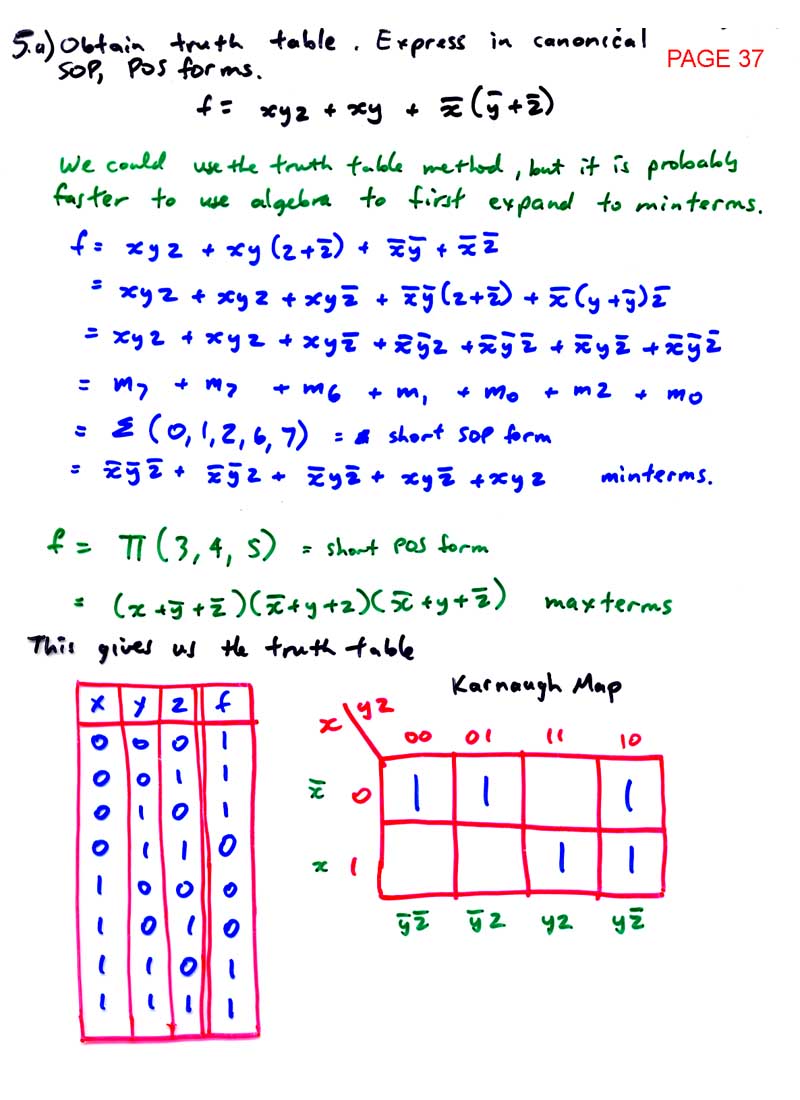 5.a) Obtain truth table. Express in canonical
PAGE 37
SOP, POS forms.
f = xyz + xy + x̅(y̅+z̅)
We could use the truth table method, but it is probably
faster to use algebra to first expand to minterms.
f = xyz + xy(z+z̅) + x̅y̅ + x̅z̅
= xyz + xyz + xyz̅ + x̅y̅(z+z̅) + x̅(y+y̅)z̅
= xyz + xyz + xyz̅ + x̅y̅z + x̅y̅z̅ + x̅yz̅ + x̅y̅z̅
= m7 + m7 + m6 + m1 + m0 + m2 + m0
= Σ(0,1,2,6,7) = short SOP form
= x̅y̅z̅ + x̅y̅z + x̅yz̅ + xyz̅ + xyz minterms.
f = π(3,4,5) = short POS form
= (x+y̅+z̅)(x̅+y+z)(x̅+y+z̅) maxterms
This gives us the truth table
x y z f
0 0 0 1
0 0 1 1
0 1 0 1
0 1 1 0
1 0 0 0
1 0 1 0
1 1 0 1
1 1 1 1
Karnaugh Map
x \ yz
00 01 11 10
x̅ 0 1 1 1
x 1 1 1
y̅z̅ y̅z yz yz̅